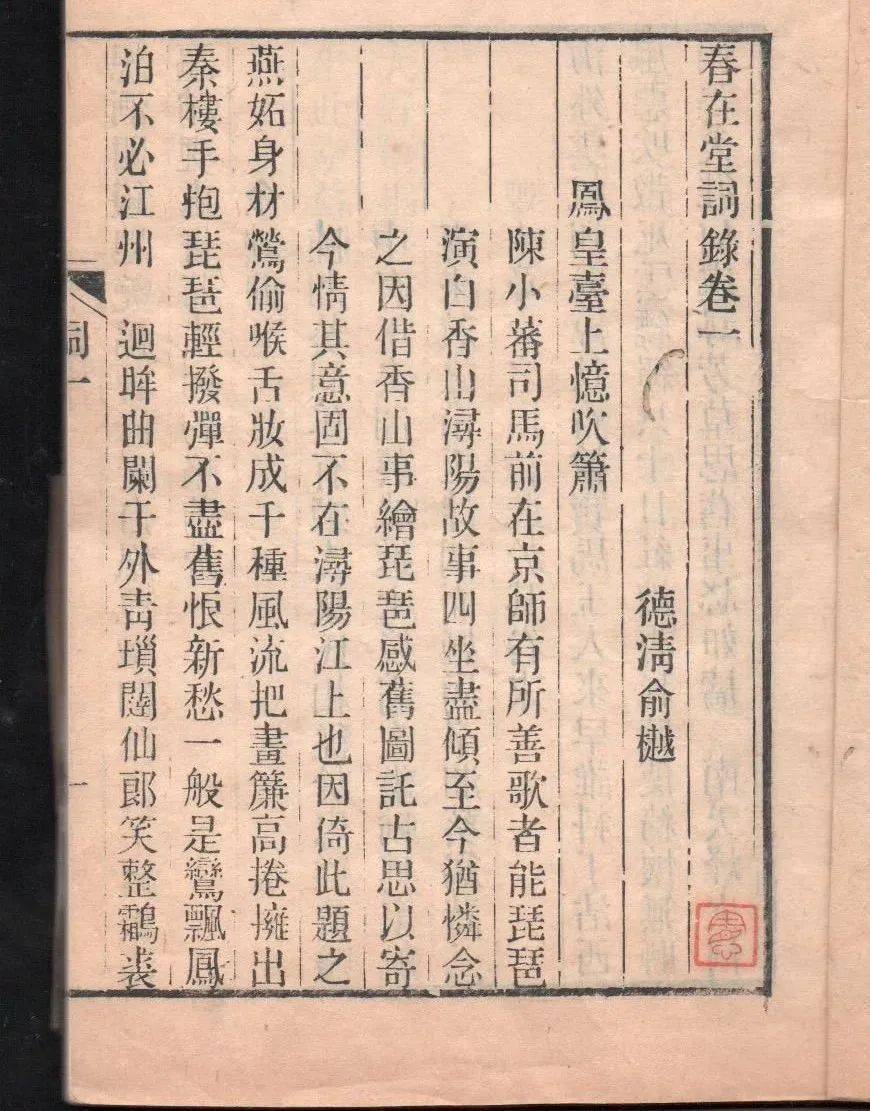 春在堂詞錄卷一
德淸俞樾
鳳皇臺上憶吹簫
陳小蕃司馬前在京師有所善歌者能琵琶
演白香山潯陽故事四坐盡傾至今猶憐念
之因借香山事繪琵琶感舊圖託古思以寄
今情其意固不在潯陽江上也因倚此題之
燕妬身材鶯偷喉舌妝成千種風流把畫簾高捲擁出
秦樓手抱琵琶輕撥彈不盡舊恨新愁一般是鸞飄鳳
泊不必江州 迴眸曲闌干外靑瑣闥仙郎笑整鸘裘
詞一
一